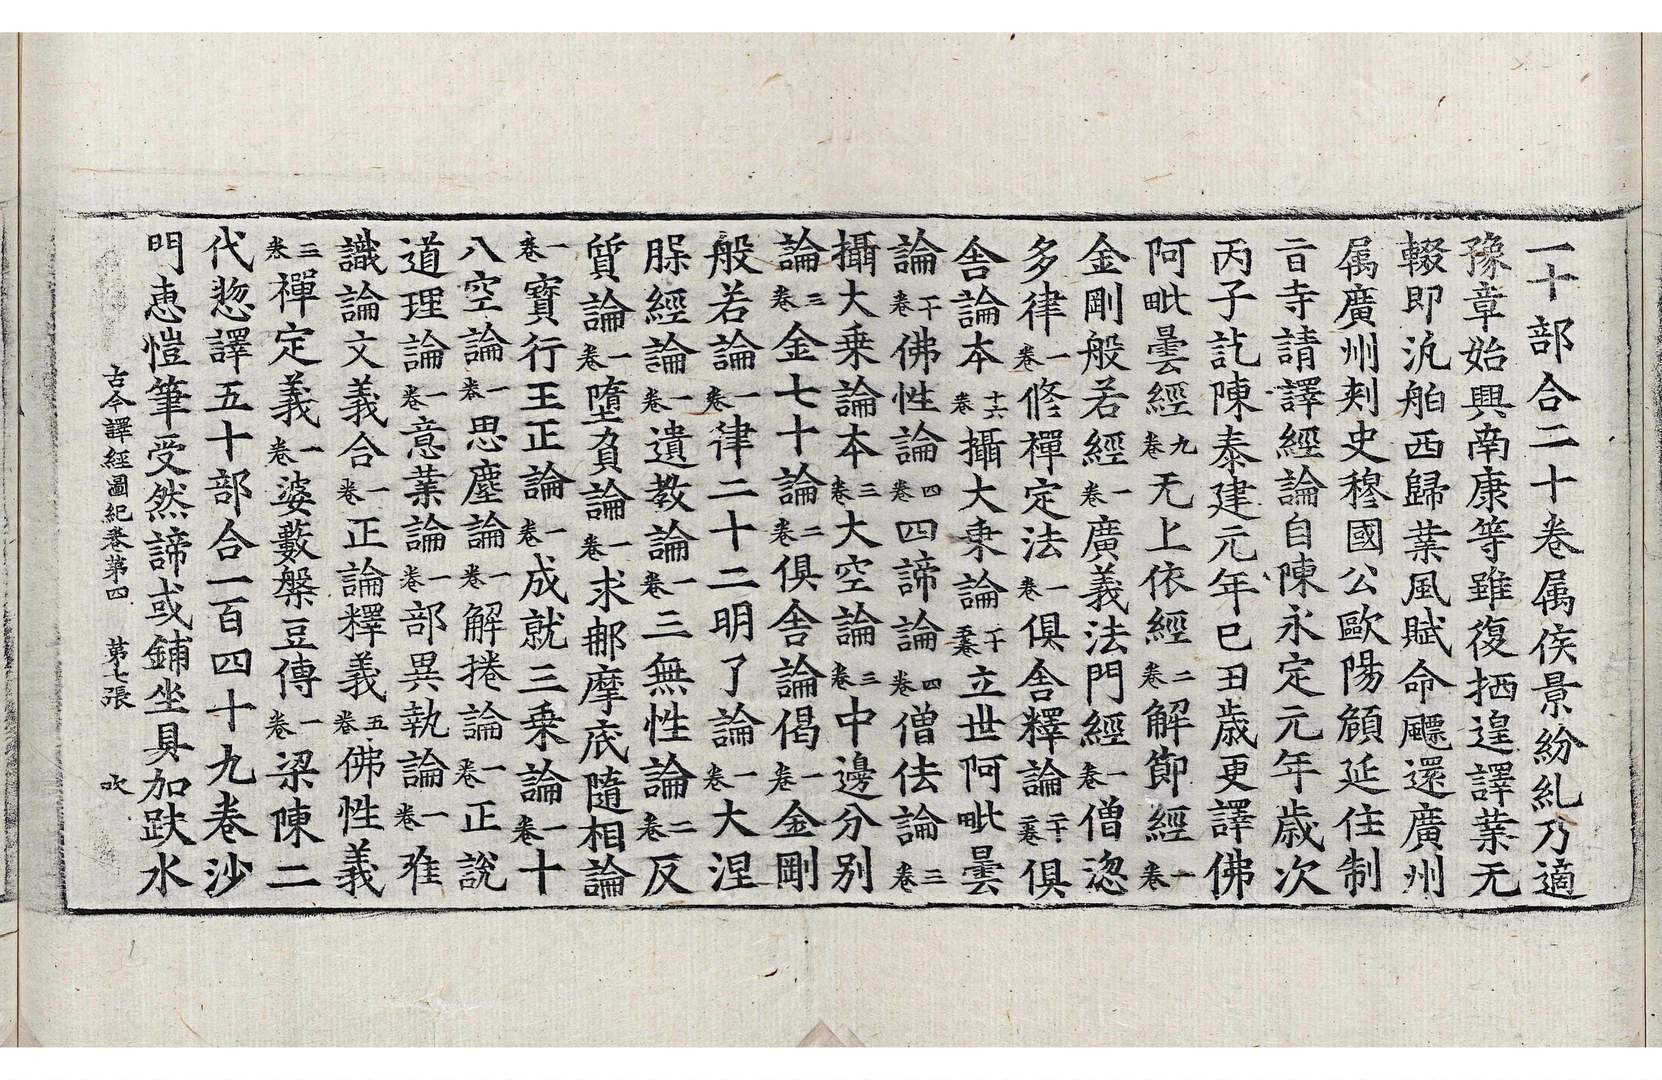 一十部合二十卷属侯景紛糺乃適
豫章始興南康等雖復栖遑譯葉无
輟即汎舶西歸葉風賦命飃還廣州
属廣州刾史穆國公歐陽頠延住制
旨寺請譯經論自陳永定元年歳次
丙子訖陳泰建元年巳丑歳更譯佛
阿毗曇經九卷无上依經二卷解節經一卷
金剛般若經一卷廣義法門經一卷僧㳒
多律一卷修禪定法一卷俱舍釋論二十二卷俱
舍論本十六卷攝大乗論十五卷立世阿毗曇
論十卷佛性論四卷四諦論四卷僧佉論三卷
攝大乗論本三卷大空論三卷中邊分別
論三卷金七十論二卷俱舍論偈一卷金剛
般若論一卷律二十二明了論一卷大涅
𦙃經論一卷遺教論一卷三無性論二卷反
質論一卷墮負論一卷求郍摩底隨相論
一卷寳行王正論一卷成就三乗論一卷十
八空論一卷思塵論一卷解捲論一卷正說
道理論一卷意葉論一卷部異執論一卷唯
識論文義合一卷正論釋義五卷佛性義
三卷禪定義一卷婆藪槃豆傳一卷梁陳二
代惣譯五十部合一百四十九卷沙
門惠愷筆受然諦或鋪坐具加趺水
古今譯經圖紀卷第四　第七張　吹